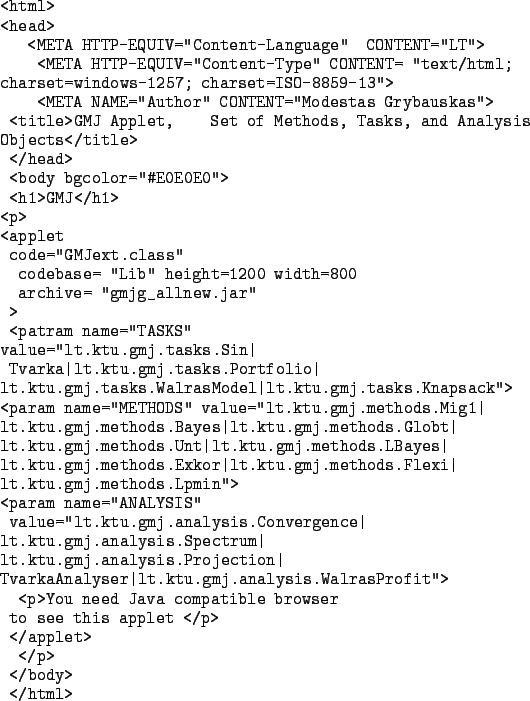 <html>
<head>
<META HTTP-EQUIV="Content-Language" CONTENT="LT">
<META HTTP-EQUIV="Content-Type" CONTENT= "text/html;
charset=windows-1257; charset=ISO-8859-13">
<META NAME="Author" CONTENT="Modestas Grybauskas">
<title>GMJ Applet, Set of Methods, Tasks, and Analysis
Objects</title>
</head>
<body bgcolor="#E0E0E0">
<h1>GMJ</h1>
<p>
<applet
code="GMJext.class"
codebase= "Lib" height=1200 width=800
archive= "gmjg_allnew.jar"
>
<patram name="TASKS"
value="lt.ktu.gmj.tasks.Sin|
Tvarka|lt.ktu.gmj.tasks.Portfolio|
lt.ktu.gmj.tasks.WalrasModel|lt.ktu.gmj.tasks.Knapsack">
<param name="METHODS" value="lt.ktu.gmj.methods.Mig1|
lt.ktu.gmj.methods.Bayes|lt.ktu.gmj.methods.Globt|
lt.ktu.gmj.methods.Unt|lt.ktu.gmj.methods.LBayes|
lt.ktu.gmj.methods.Exkor|lt.ktu.gmj.methods.Flexi|
lt.ktu.gmj.methods.Lpmin">
<param name="ANALYSIS"
value="lt.ktu.gmj.analysis.Convergence|
lt.ktu.gmj.analysis.Spectrum|
lt.ktu.gmj.analysis.Projection|
TvarkaAnalyser|lt.ktu.gmj.analysis.WalrasProfit">
<p>You need Java compatible browser
to see this applet </p>
</applet>
</p>
</body>
</html>